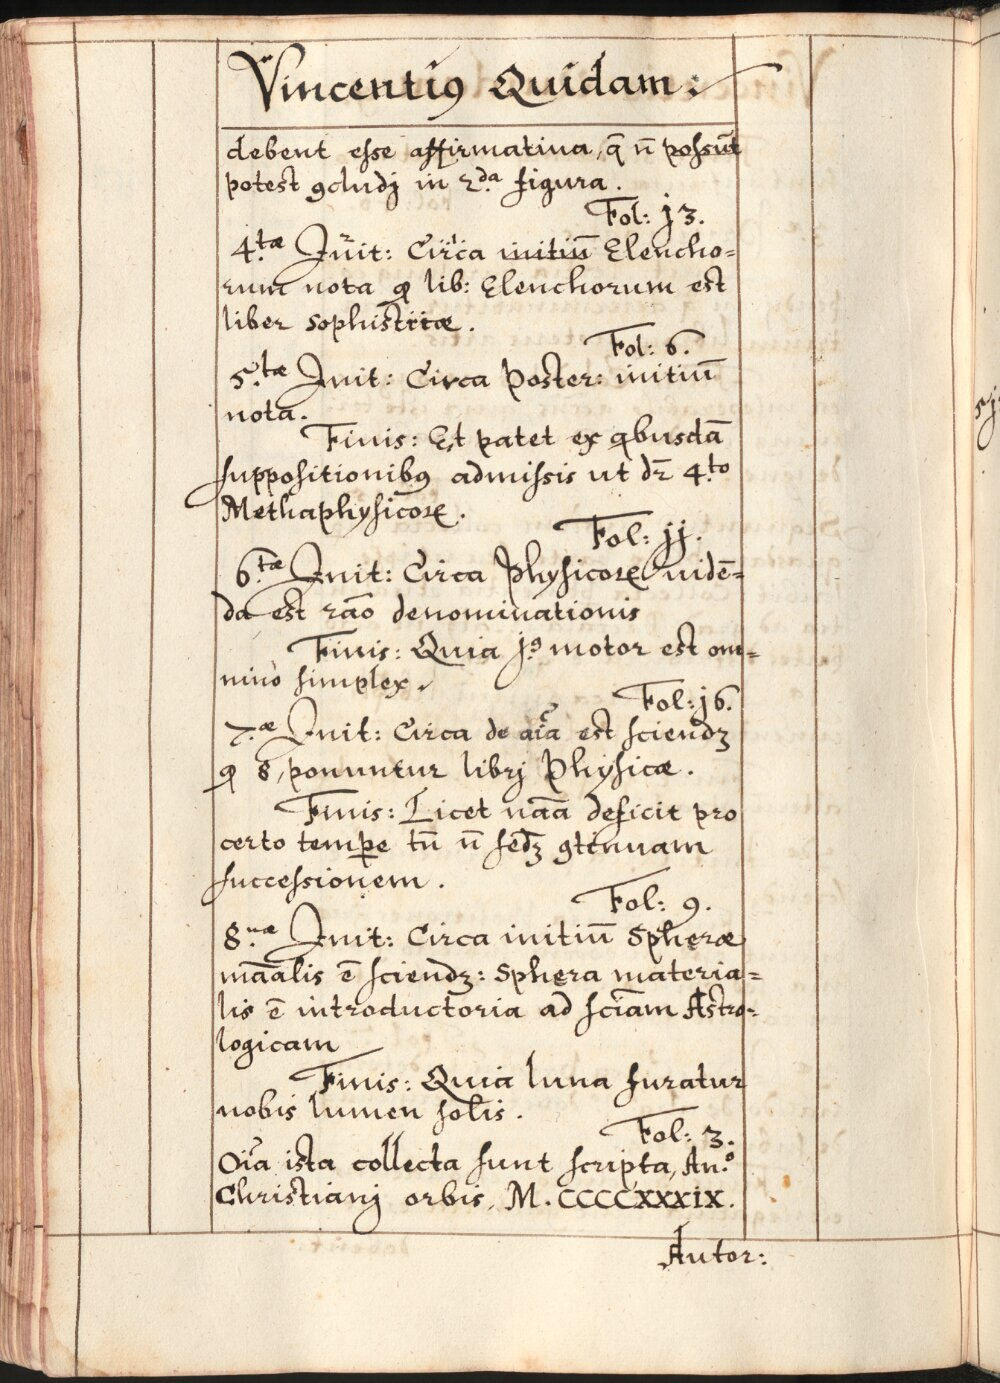 Vincentiꝰ Quidam:
debent esse affirmatiua, q̄ n̄ possūt
potest ꝯcludj in 2.da figura.
Fol: j3.
4.tæ Jnit: Circa initiū Elencho=
rum nota ꝙ lib: Elenchorum est
liber sophistriæ.
Fol: 6.
5.tæ Jnit: Circa Poster: initiū
nota.
Finis: Et patet ex qbusdā
suppositionibꝰ admissis ut dr̄ 4.to
Methaphysicoꝝ.
Fol: jj.
6.tæ Jnit: Circa Physicoꝝ uidē=
da est rāo denominationis
Finis: Quia j.º motor est om=
nino simplex.
Fol: j6.
7.æ Jnit: Circa de aīa est sciendꝫ
ꝙ 8, ponuntur librj Physicæ.
Finis: Licet nāa deficit pro
certo tempe tn̄ n̄ sedꝫ ꝯtinuam
successionem.
Fol: 9.
8.uæ Jnit: Circa initiū Spheræ
māalis ē sciendꝫ: Sphera materia=
lis ē introductoria ad sciam Astro=
logicam
Finis: Quia luna furatur
nobis lumen solis.
Fol: 3.
Oīa ista collecta sunt scripta, An.º
Christianj orbis, M.CCCCXXXIX.
Autor: